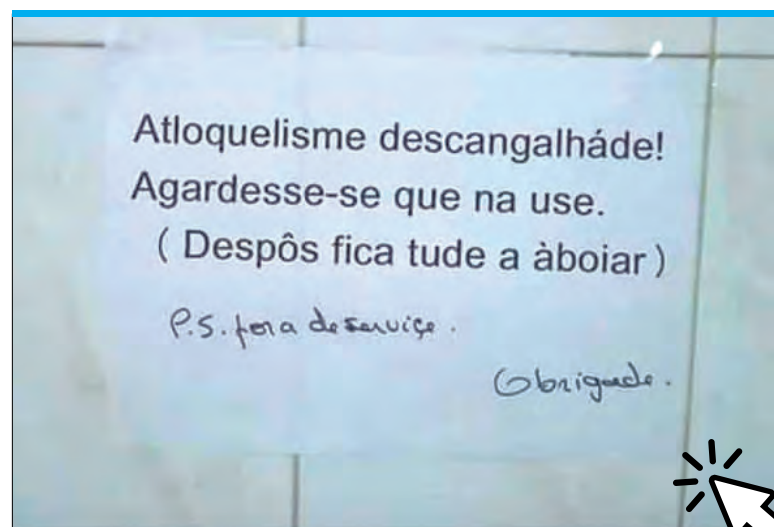 Atloquelisme descangalháde!
Agardesse-se que na use.
( Despôs fica tude a àboiar )
P.S. fora de serviçe.
Obrigade.